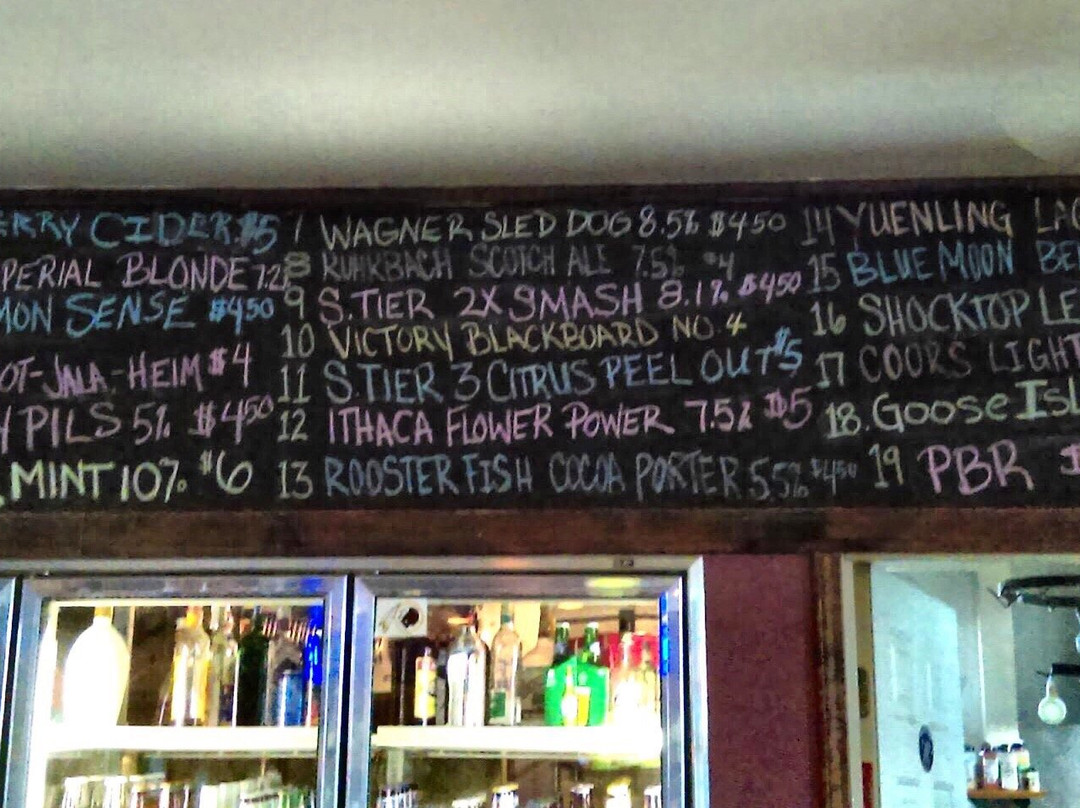 ERRY CIDER $5
PERIAL BLONDE 7.2%
MON SENSE $4.50
OT-JALA-HEIM $4
Y PILS 5% $4.50
MINT 10% $6
7 WAGNER SLED DOG 8.5% $4.50
8 SCOTCH ALE 7.5% $4
9 S.TIER 2X SMASH 8.1% $4.50
10 VICTORY BLACKBOARD NO. 4
11 S.TIER 3 CITRUS PEEL OUT $5
12 ITHACA FLOWER POWER 7.5% $5
13 ROOSTER FISH COCOA PORTER 5.5% $4.50
14 YUENLING LAG
15 BLUE MOON BE
16 SHOCKTOP LE
17 COORS LIGHT
18. Goose Isl
19 PBR $